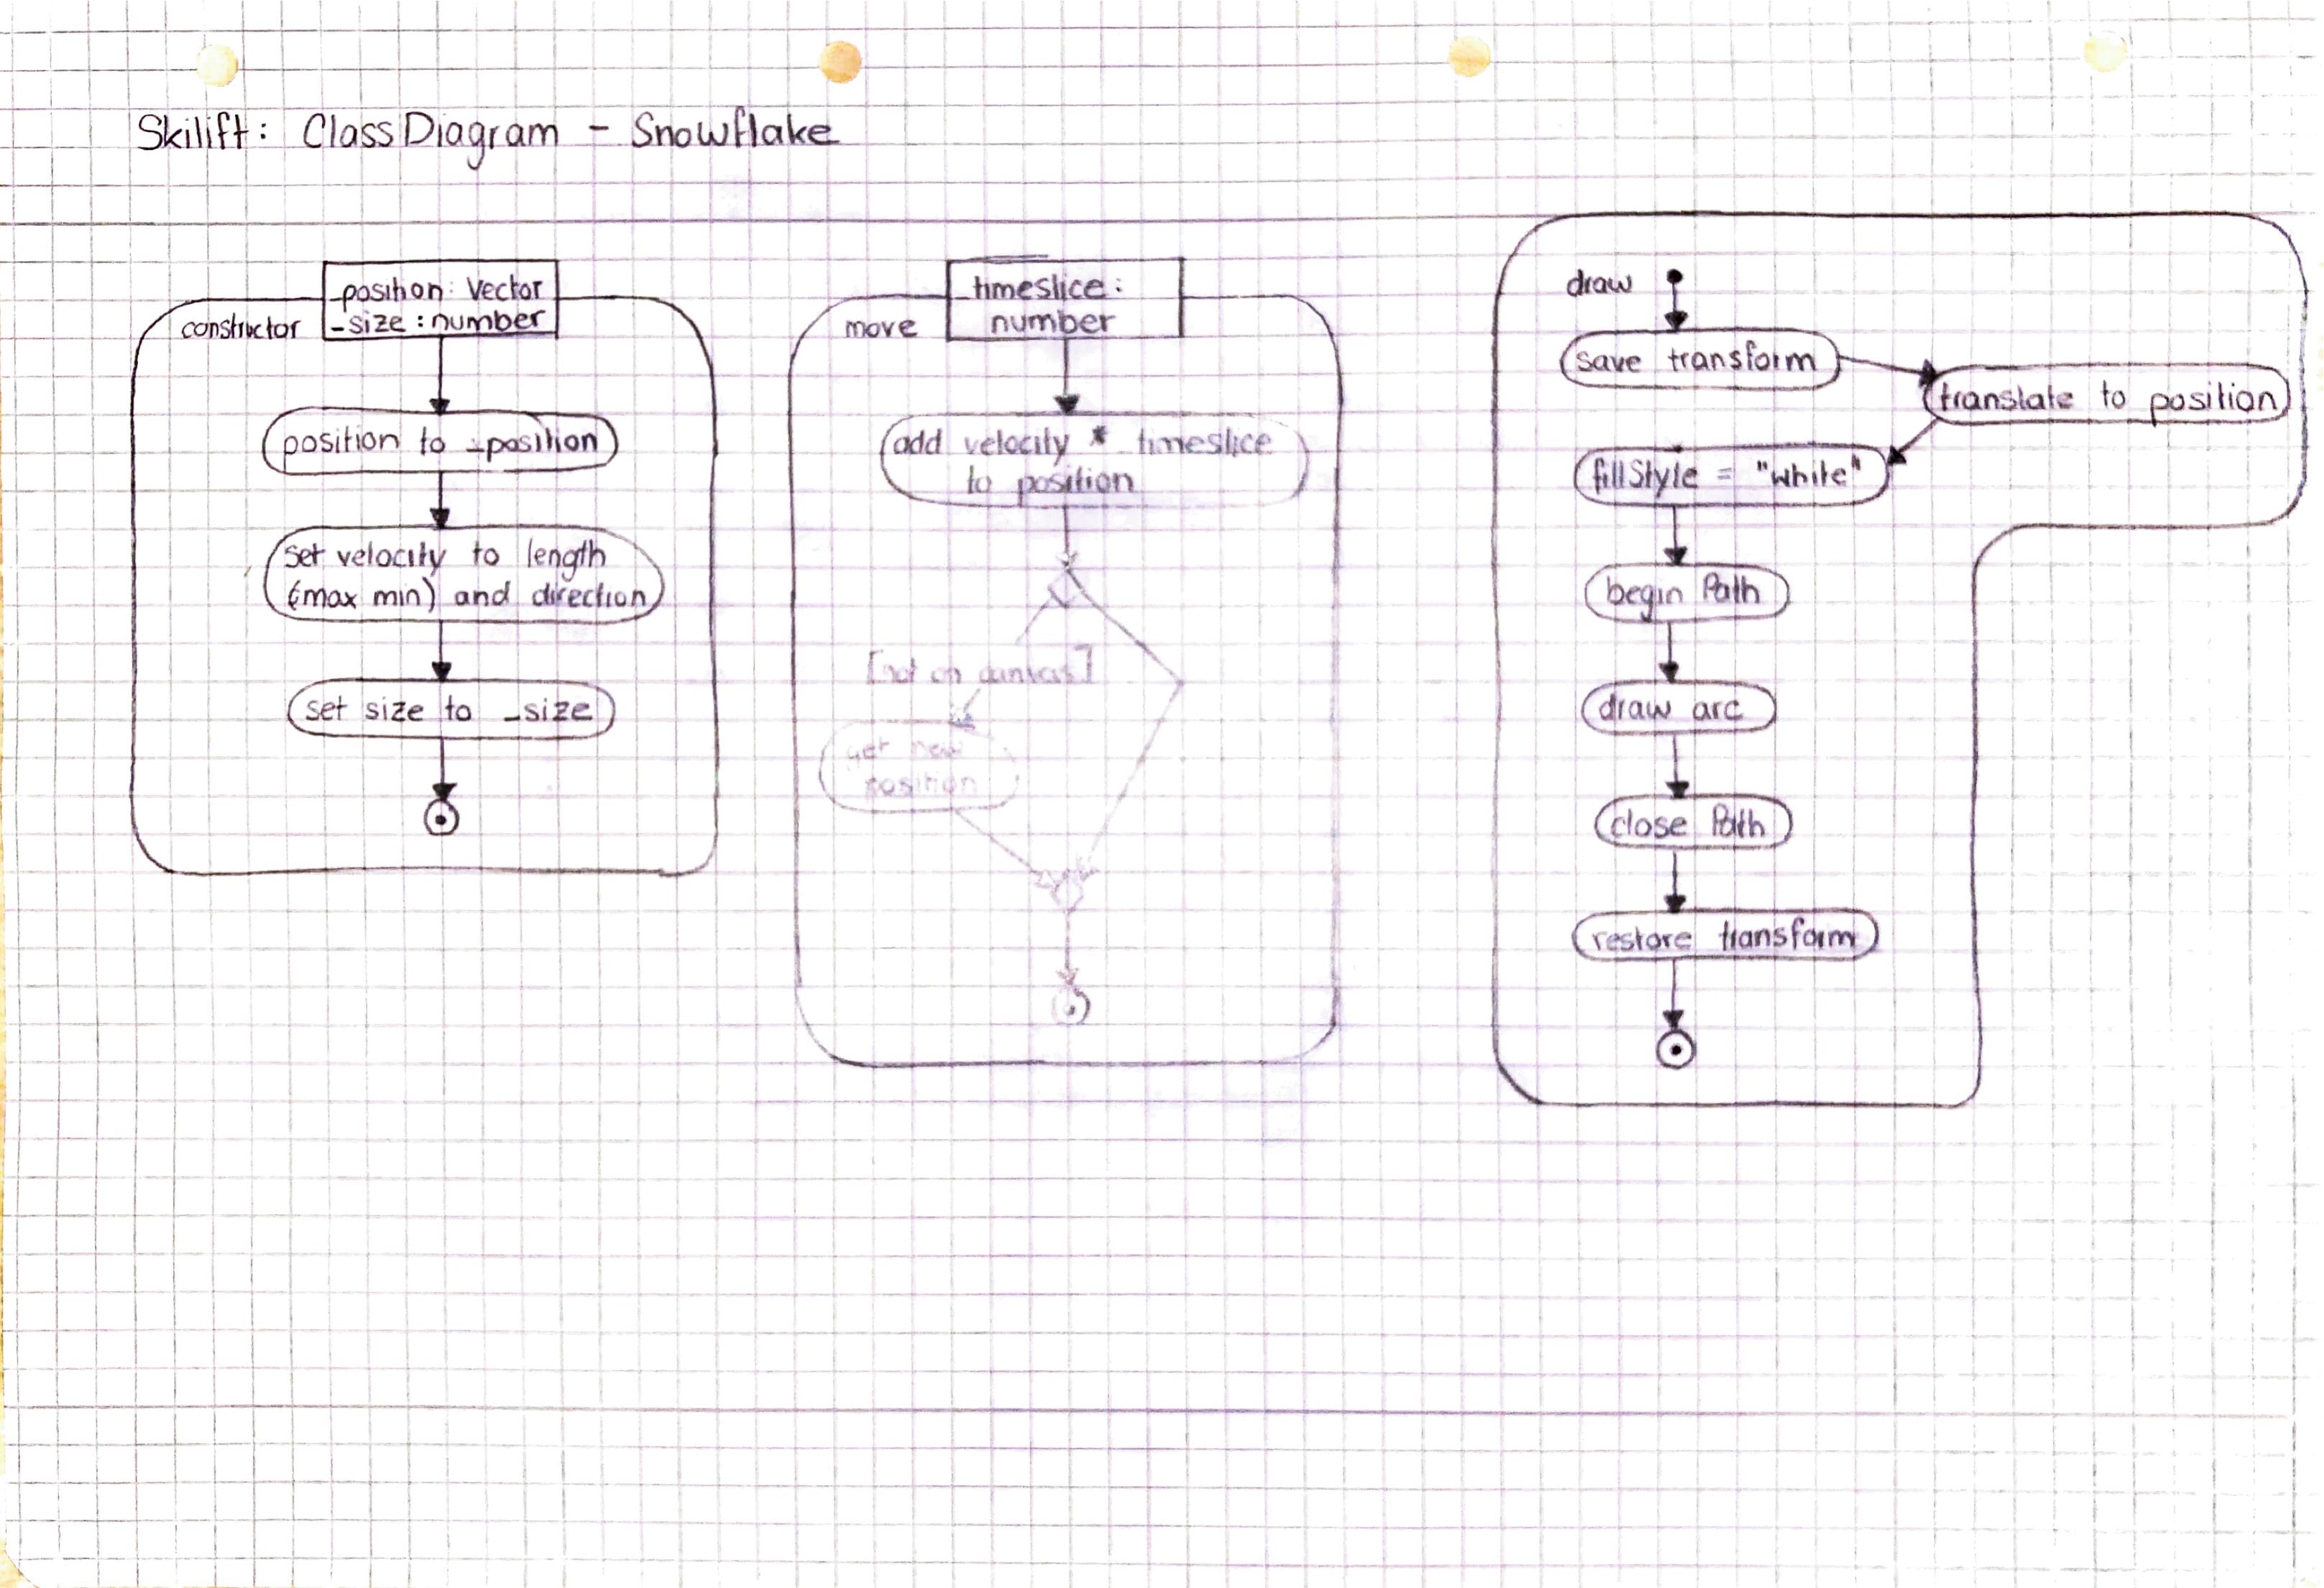 Skilift: ClassDiagram - Snowflake
_position: Vector
_size: number
constructor
position to _position
set velocity to length
(max min) and direction
set size to _size
_timeslice:
number
move
add velocity * _timeslice
to position
[not on canvas]
get new
position
draw
save transform
translate to position
fillStyle = "white"
begin Path
draw arc
close Path
restore transform